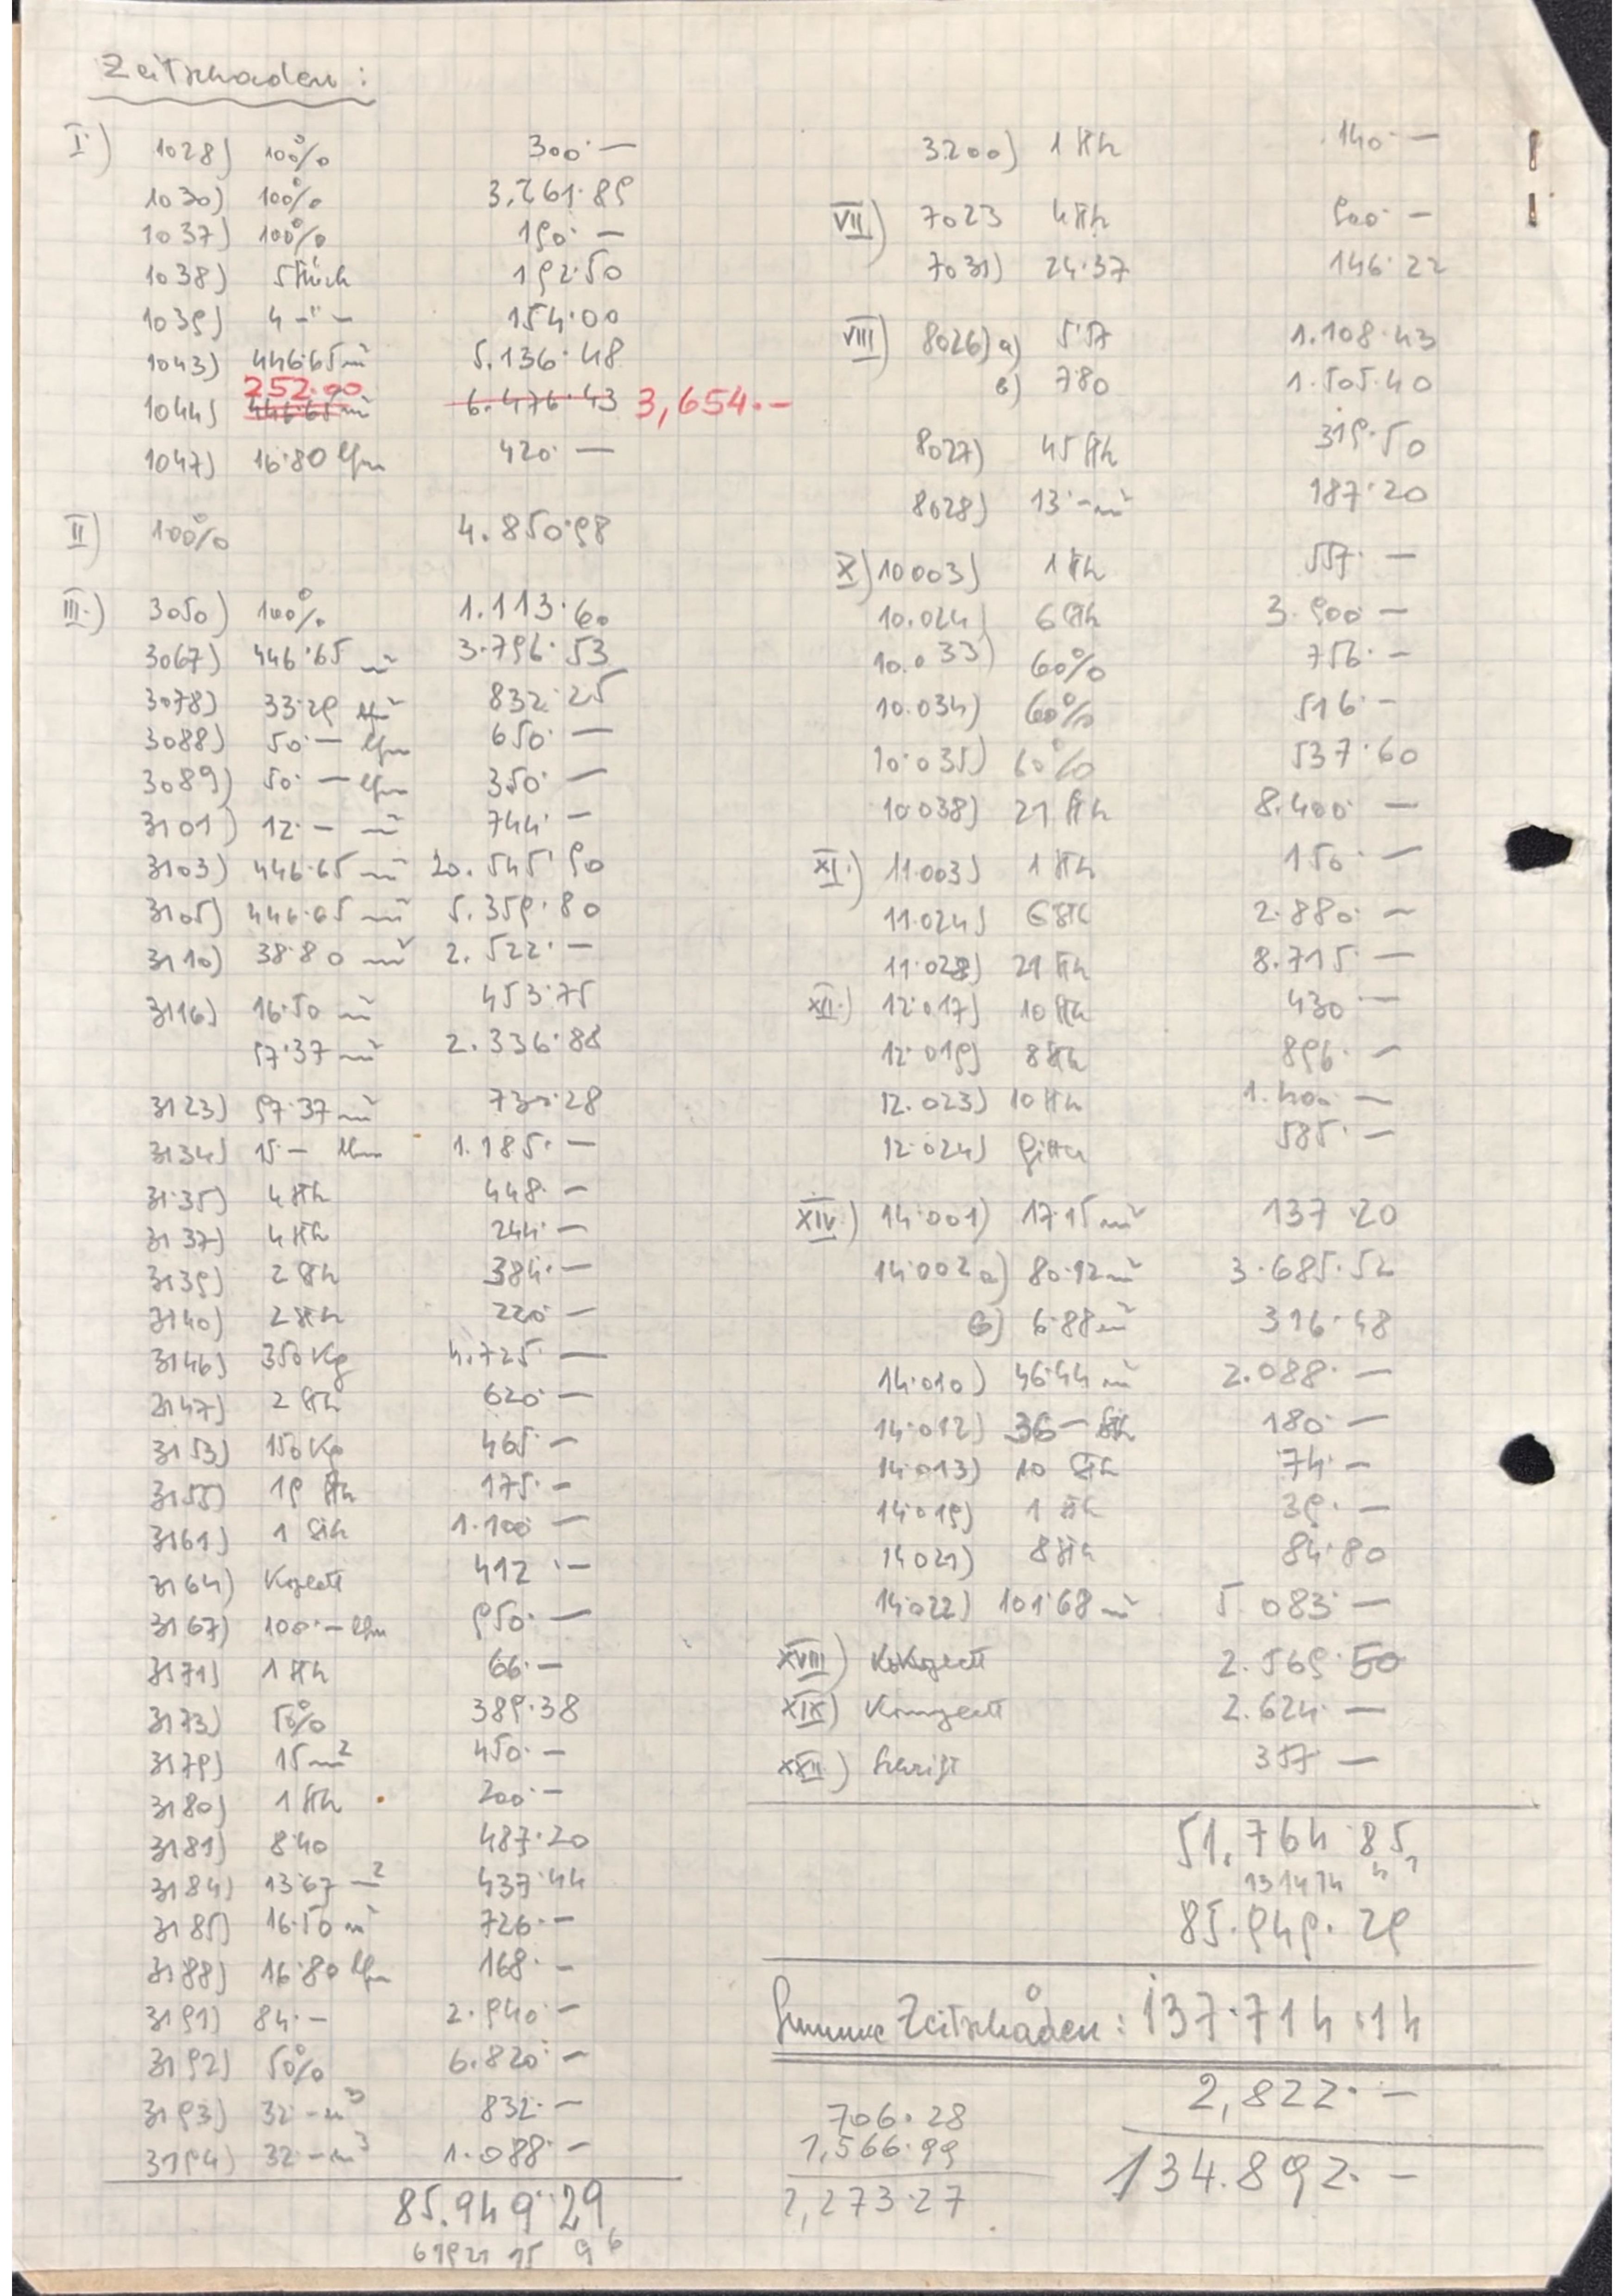 Zeitschaden:
I.) 1028) 100% 300·—
1030) 100% 3.261·89
1037) 100% 190·—
1038) 5 Stück 192·50
1039) 4 -"- 154·00
1043) 446·65 m² 5.136·48
252·00
1044) 446·65 m² 6.476·43 3,654·-
1047) 16·80 lfm 420·—
II) 100% 4.850·98
III.) 3050) 100% 1.113·60
3067) 446·65 m² 3.796·53
3078) 33·29 m² 832·25
3088) 50·— lfm 650·—
3089) 50·— lfm 350·—
3101) 12·— m² 744·—
3103) 446·65 m² 20.545·90
3105) 446·65 m² 5.359·80
3110) 38·80 m² 2.522·—
3116) 16·50 m² 453·75
97·37 m² 2.336·88
3123) 97·37 m² 730·28
3134) 15·— lfm 1.185·—
3135) 4 Stk 448·—
3137) 4 Stk 244·—
3139) 2 Stk 384·—
3140) 2 Stk 220·—
3146) 350 Kg 4.725·—
3147) 2 Stk 620·—
3153) 150 Kg 465·—
3155) 19 Stk 175·—
3161) 1 Stk 1.100·—
3164) Komplett 412·—
3167) 100·— lfm 950·—
3171) 1 Stk 66·—
3173) 50% 389·38
3179) 15 m² 450·—
3180) 1 Stk 200·—
3181) 8·40 487·20
3184) 13·67 m² 437·44
3185) 16·50 m² 726·—
3188) 16·80 lfm 168·—
3191) 84·— 2.940·—
3192) 50% 6.820·—
3193) 32·— m³ 832·—
3194) 32·— m³ 1.088·—
85.949·29
3200) 1 Stk 140·—
VII) 7023 4 Stk 900·—
7031) 24·37 146·22
VIII) 8026) a) 5·57 1.108·43
b) 7·80 1.505·40
8027) 45 Stk 319·50
8028) 13·— m² 187·20
X) 10003) 1 Stk 557·—
10.024) 6 Stk 3.900·—
10.033) 60% 756·—
10.034) 60% 516·—
10.035) 60% 537·60
10.038) 21 Stk 8.400·—
XI.) 11.003) 1 Stk 150·—
11.024) 6 Stk 2.880·—
11.028) 21 Stk 8.715·—
XII.) 12.017) 10 Stk 430·—
12.019) 8 Stk 896·—
12.023) 10 Stk 1.400·—
12.024) Gitter 585·—
XIV.) 14.001) 17·15 m² 137·20
14.002 a) 80·12 m² 3.685·52
b) 6·88 m² 316·48
14.010) 46·44 m² 2.088·—
14.012) 36·— Stk 180·—
14.013) 10 Stk 74·—
14.019) 1 Stk 39·—
14.021) 8 Stk 84·80
14.022) 101·68 m² 5.083·—
XVIII) Komplett 2.569·50
XIX) Komplett 2.624·—
XXII.) Schrift 357·—
51.764·85
85.949·29
Summe Zeitschäden: 137.714·14
2,822·—
134.892·—
706·28
1,566·99
2,273·27